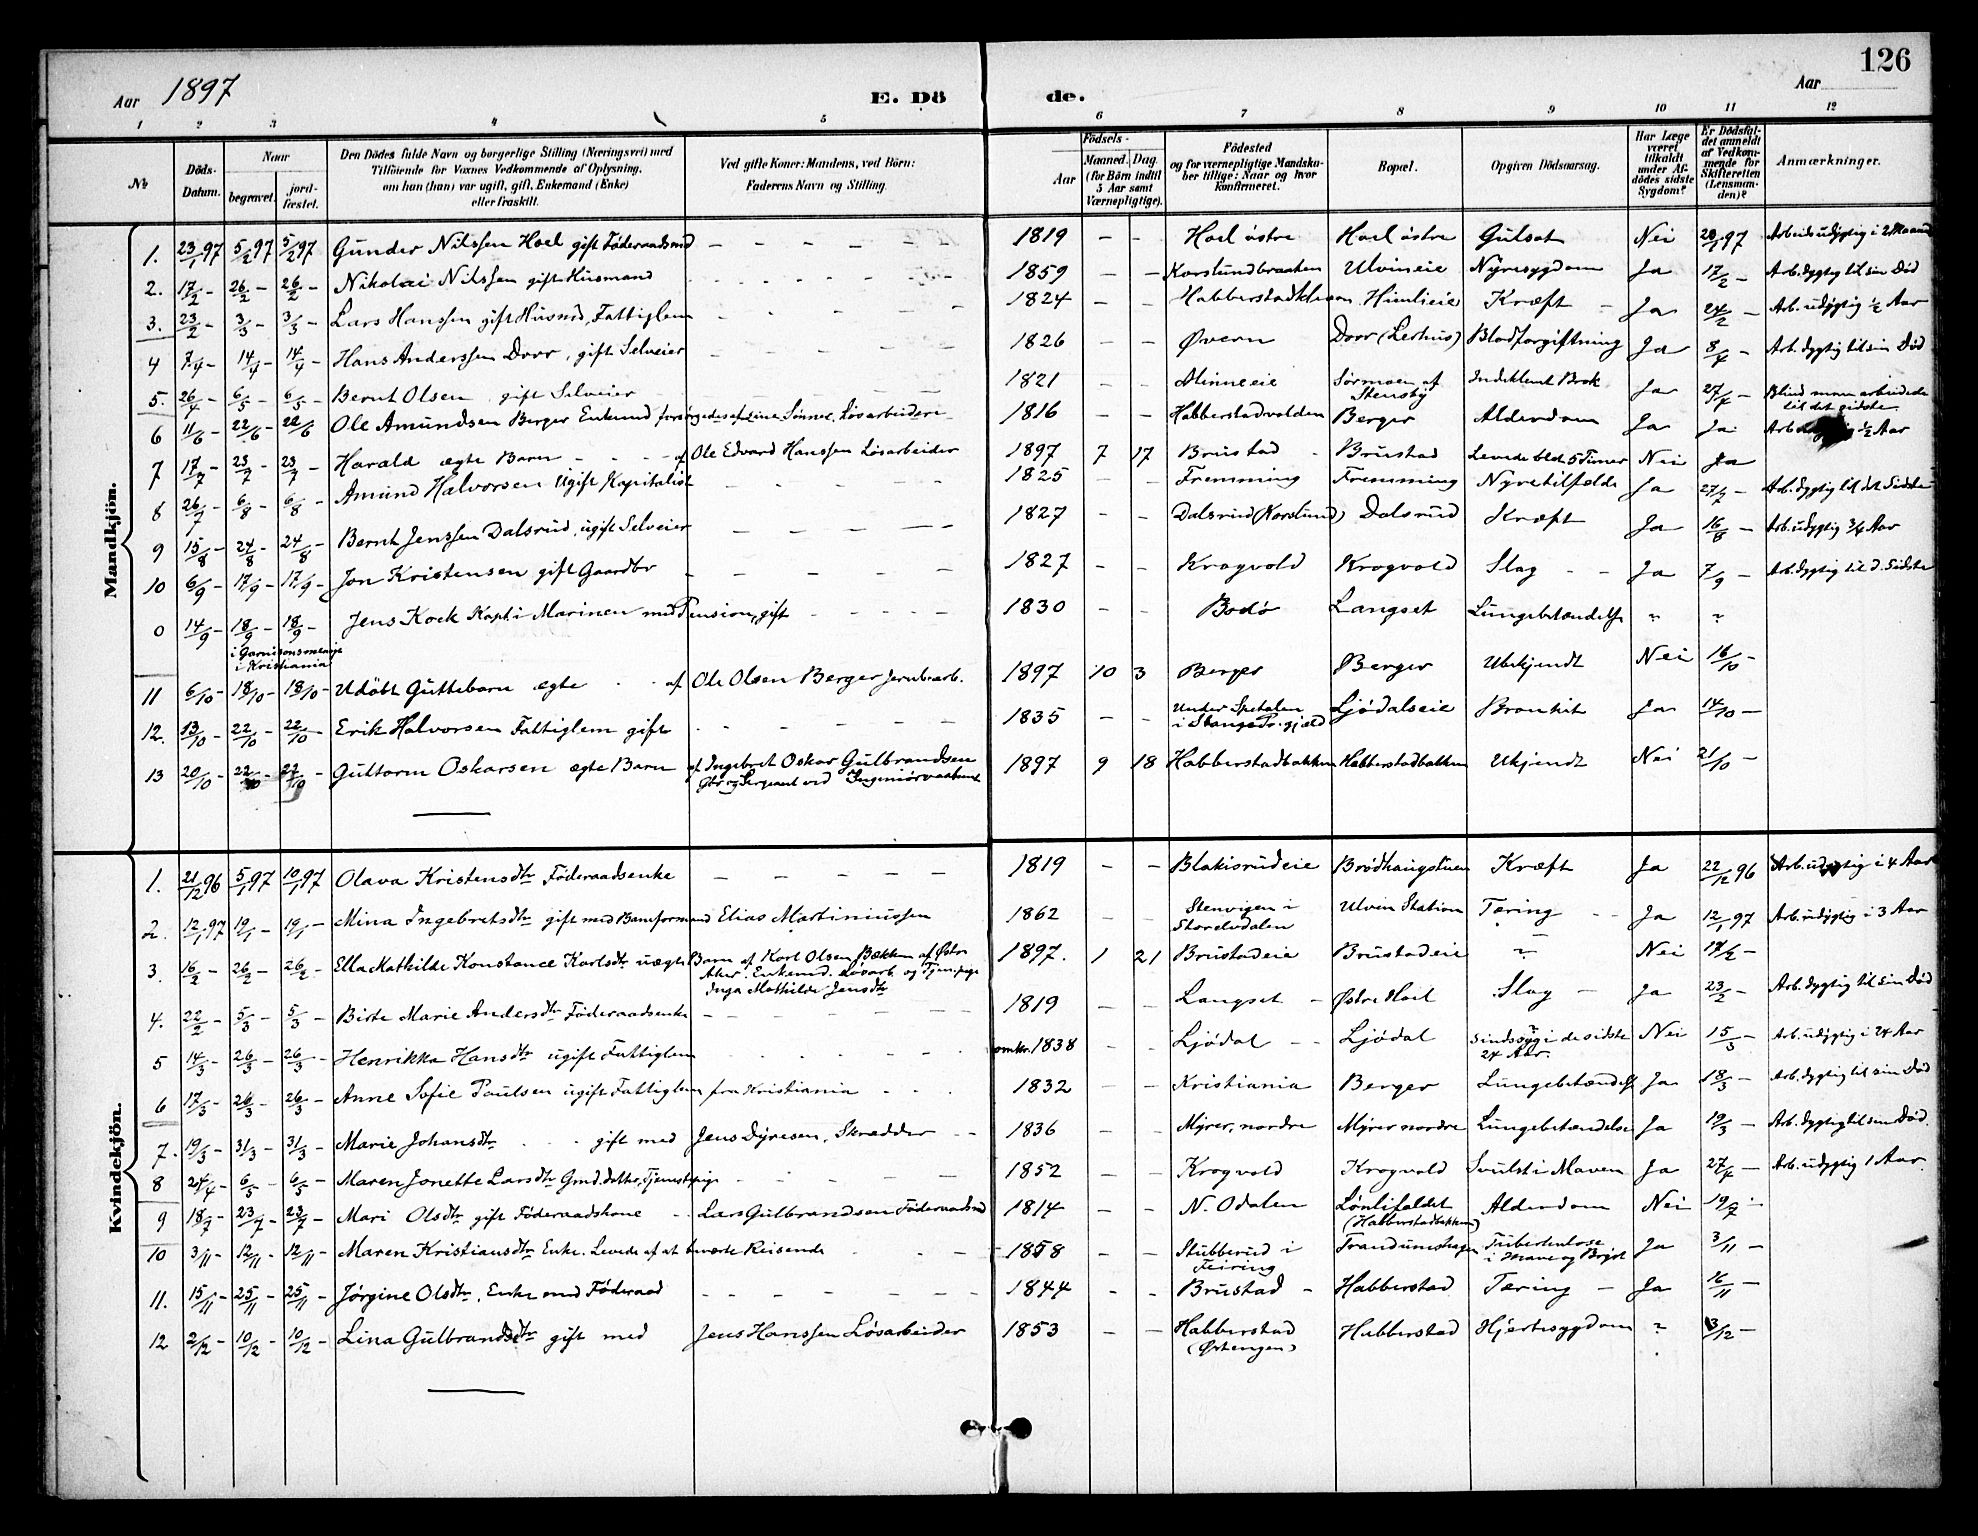 126
Aar 1897
E. Döde.
Aar
1 2 3 4 5 6 7 8 9 10 11 12
No
Döds-Datum.
Naar
begravet.
jord-fæstet.
Den Dödes fulde Navn og borgerlige Stilling (Næringsvei) med
Tilföiende for Voxnes Vedkommende af Oplysning,
om hun (han) var ugift, gift, Enkemand (Enke)
eller fraskilt.
Ved gifte Koner: Mandens, ved Börn:
Faderens Navn og Stilling.
Födsels-
Aar
Maaned. Dag.
(for Börn indtil
5 Aar samt
Værnepligtige).
Födested
og for værnepligtige Mandska-
ber tillige: Naar og hvor
konfirmeret.
Bopæl.
Opgiven Dödsaarsag.
Har Læge
været
tilkaldt
under Af-
dödes sidste
Sygdom?
Er Dödsfal-
det anmeldt
af Vedkom-
mende for
Skifteretten
(Lensman-
den)?
Anmærkninger.
Mandkjön.
1. 23/1 97 5/2 97 5/2 97 Gunder Nilssen Hoel gift Föderaadsmd – – – – – – 1819 – – Hoel östre Hoel östre Gulsot Nei 28/1 97 Arbeidsudygtig i 2 Maaned
2. 17/2 – 26/2 – 26/2 – Nikolai Nilssen gift Husmand 1859 – – Korslundbraaten Ulvineie Nyresygdom Ja 17/2 – Arb. dygtig til sin Död
3. 23/2 – 3/3 – 3/3 – Lars Hanssen gift Husmd, Fattiglem 1824 – – Habberstad Himlieie Kræft – Ja 24/2 – Arb. udygtig 1/2 Aar
4 7/4 – 14/4 – 14/4 – Hans Anderssen Dorr, gift Selveier 1826 – – Øvern Dorr (Lerhus) Blodforgiftning Ja 8/4 – Arb. dygtig til sin Död
5. 26/4 – 6/5 – 6/5 – Bernt Olsen gift Selveier 1821 – – Minneeie Sörmoen af Stensby Indeklemt Brok Ja 27/4 – Blind men arbeidede til det sidste
6 11/6 – 22/6 – 22/6 Ole Amundsen Berger Enkemd forsörgedes af sine Sönner, Lösarbeidere 1816 – – Habberstadvolden Berger Alderdom Ja Ja Arb. 1/2 Aar
7 17/7 – 23/7 – 23/7 – Harald ægte Barn – – – af Ole Edvard Hanssen Lösarbeider 1897 7 17 Brustad Brustad Levede blot 5 Timer Nei Ja
8 26/7 – 6/8 – 6/8 – Amund Halvorsen Ugift Kapitalist 1825 – – Fremming Fremming Nyretilfælde Ja 27/7 – Arb. dygtig til det Sidste
9 15/8 – 24/8 – 24/8 – Bernt Jenssen Dalsrud, ugift Selveier 1827 – – Dalsrud (Korslund) Dalsrud Kræft Ja 16/8 – Arb. udygtig 3/4 Aar
10 6/9 – 17/9 – 17/9 – Jon Kristensen gift Gaardbr – – – – – 1827 – – Krogvold Krogvold Slag – – Ja 7/9 – Arb. dygtig til d. Sidste
0 14/9 – 18/9 – 18/9 – Jens Kock Kapt. i Marinen med Pension, gift – – – – – 1830 – – Bodö Langset Lungebetændelse " "
i Garnisonsmenige
i Kristiania
11 6/10 – 18/10 – 18/10 – Udöbt Guttebarn ægte – – af Ole Olsen Berger Jernb.arb. 1897 10 3 Berger Berger Ubekjendt Nei 16/10 –
12. 13/10 – 22/10 – 22/10 – Erik Halvorsen Fattiglem gift 1835 – – Under Spetalen i Stange Pr.gjæld Ljödalseie Bronkit Ja 14/10 –
13 20/10 – 22/10 – 22/10 – Guttorm Oskarsen ægte Barn af Ingebret Oskar Gulbrandsen 1897 9 18 Habberstadbakken Habberstadbakken Ukjendt Nei 21/10 –
Gbr og Sergeant ved Ingeniörvaabnet
Kvindekjön.
1. 21/12 96 5/1 97 10/1 97 Olava Kristensdtr Föderaadsenke – – – – – 1819 – – Blakisrudeie Brödhaugstuen Kræft Ja 22/12 96 Arb. udygtig i 4 Aar
2. 12/1 97 19/1 – 19/1 – Mina Ingebretsdtr gift med Baneformand Elias Martiniussen 1862 – – Stenvigen i Storelvdalen Ulvin Station Tæring – – Ja 12/1 97 Arb. udygtig i 3 Aar
3. 16/2 – 26/2 – 26/2 – Ella Mathilde Konstance Karlsdtr uægte Barn af Karl Olsen Bækken af Østre 1897. 1 21 Brustadeie Brustadeie " Nei 17/2 –
Aker. Enkemd. Lösarb. og Tjen.pige
Inga Mathilde Jensdtr
4. 22/2 – 5/3 – 5/3 – Birte Marie Andersdtr Föderaadsenke – – – – – – 1819 – – Langset – Østre Hoel Slag – Ja 23/2 – Arb. dygtig til sin Död
5 14/3 – 26/3 – 26/3 – Henrikka Hansdtr ugift Fattiglem omkr. 1838 – – Ljödal – – Ljödal Sindssyg i de sidste 24 Aar Nei 15/3 – Arb. udygtig i 24 Aar
6 17/3 – 26/3 – 26/3 – Anne Sofie Paulsen ugift Fattiglem fra Kristiania 1832 – – Kristiania Berger Lungebetændelse Ja 18/3 – Arb. dygtig til sin Död
7. 19/3 – 31/3 – 31/3 – Marie Johansdtr gift med Jens Dyresen, Skrædder – – 1836 – – Myrer, nordre Myrer nordre Lungebetændelse Ja 19/3 – Arb. dygtig til sin Död.
8 24/4 – 6/5 – 6/5 – Maren Jonette Larsdtr Gmd.datter, Tjenestpige 1852 – – Krogvold Krogvold Svulst i Maven Ja 27/4 – Arb. udygtig 1 Aar.
9 18/7 – 23/7 – 23/7 – Mari Olsdtr gift Föderaadskone – Lars Gulbrandsen Föderaadsmd 1814 – – N. Odalen Lönlifaldet (Habberstadbakken) Alderdom Nei 19/7 –
10 3/11 – 12/11 – 12/11 – Maren Kristiansdtr Enke. Levede af at beværte Reisende – – 1858 – – Stubberud i Feiring Trandumskogen Tuberkulose i Mave og Bryst Ja 3/11 –
11. 15/11 – 25/11 – 25/11 – Jörgine Olsdtr. Enke med Föderaad 1844 – – Brustad – Habberstad Tæring – Ja 16/11 –
12 2/12 – 10/12 – 10/12 – Lina Gulbrandsdtr gift med Jens Hanssen Lösarbeider 1853 – – Habberstad (Østengen) Habberstad Hjertesygdom " 3/12 –